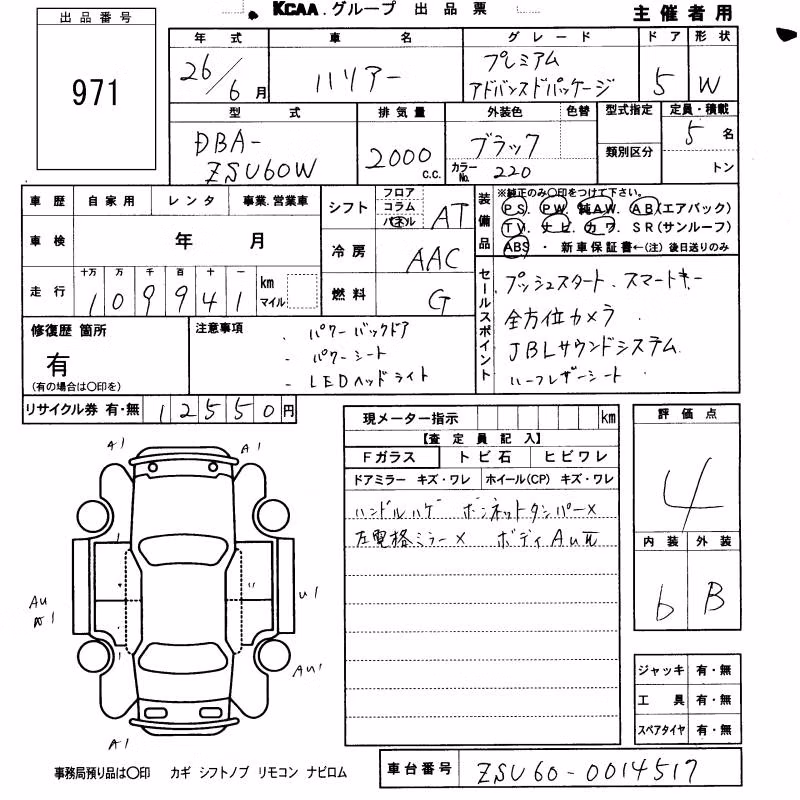 KCAA.グループ 出品票
主催者用
出品番号
971
年式 車名 グレード ドア 形状
26/6月 ハリアー プレミアム
アドバンスドパッケージ 5 W
型式 排気量 外装色 色替 型式指定 定員・積載
DBA-
ZSU60W 2000c.c. ブラック
カラーNo. 220
類別区分
5名
トン
車歴 自家用 レンタ 事業.営業車
車検 年 月
走行 十万 万 千 百 十 一
109941 km
マイル
シフト フロア
コラム
パネル AT
冷房 AAC
燃料 G
装備品 ※純正のみ○印をつけて下さい。
PS. PW. 純AW. AB(エアバック)
TV. ナビ. カワ. SR(サンルーフ)
ABS ・ 新車保証書←(注) 後日送りのみ
セールスポイント
プッシュスタート. スマートキー
全方位カメラ
JBLサウンドシステム
ハーフレザーシート
修復歴 箇所
有
(有の場合は○印を)
注意事項
・パワーバックドア
・パワーシート
・LEDヘッドライト
リサイクル券 有・無 12550円
現メーター指示 km
【査定員記入】
Fガラス トビ石 ヒビワレ
ドアミラー キズ・ワレ ホイール(CP) キズ・ワレ
ハンドルハゲ ボンネットダンパー×
左電格ミラー× ボディAU瓦
評価点
4
内装 外装
b B
A1 A1
AU
A1
U1
AU1
A1
ジャッキ 有・無
工具 有・無
スペアタイヤ 有・無
事務局預り品は○印 カギ シフトノブ リモコン ナビロム
車台番号 ZSU60-0014517